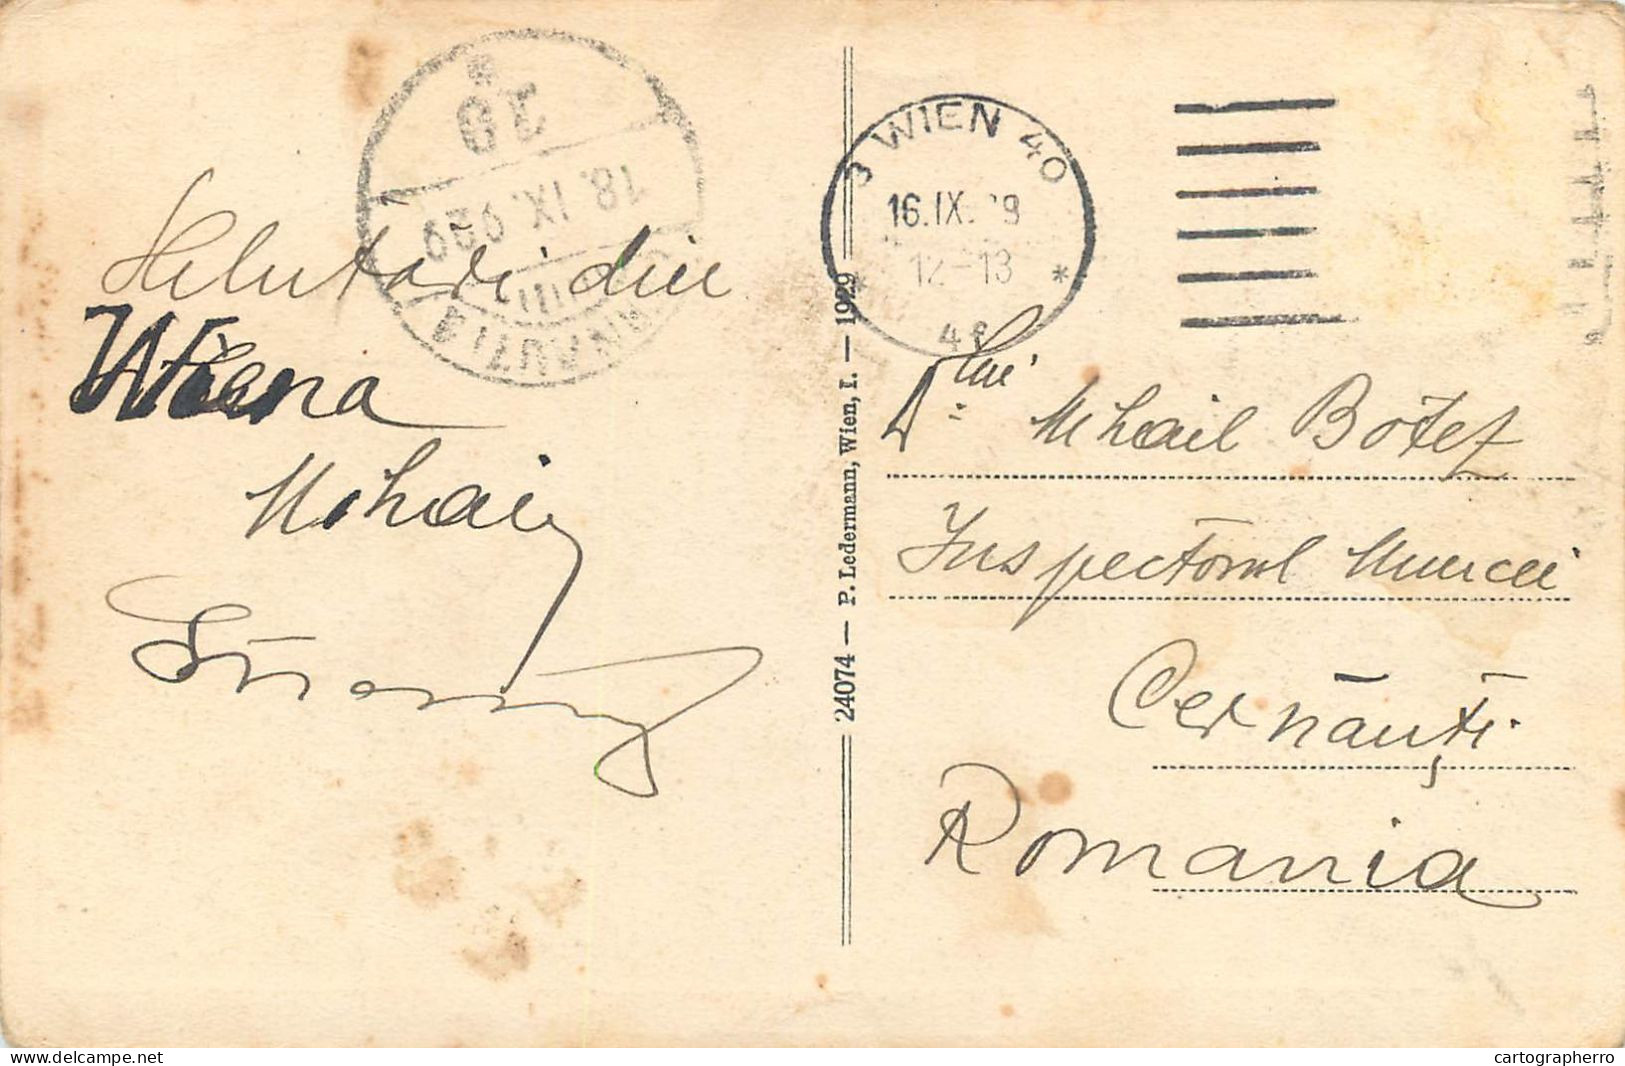 Salutari din
Wiena
Mihai
18
18. IX. 929
24074 — P. Ledermann, Wien, I. — 1929
3 WIEN 40
16.IX. 9
12-13
* *
Dlui Mihail Botez
Inspectorul Muncei
Cernăuţi
Romania
delcampe.net
cartographerro